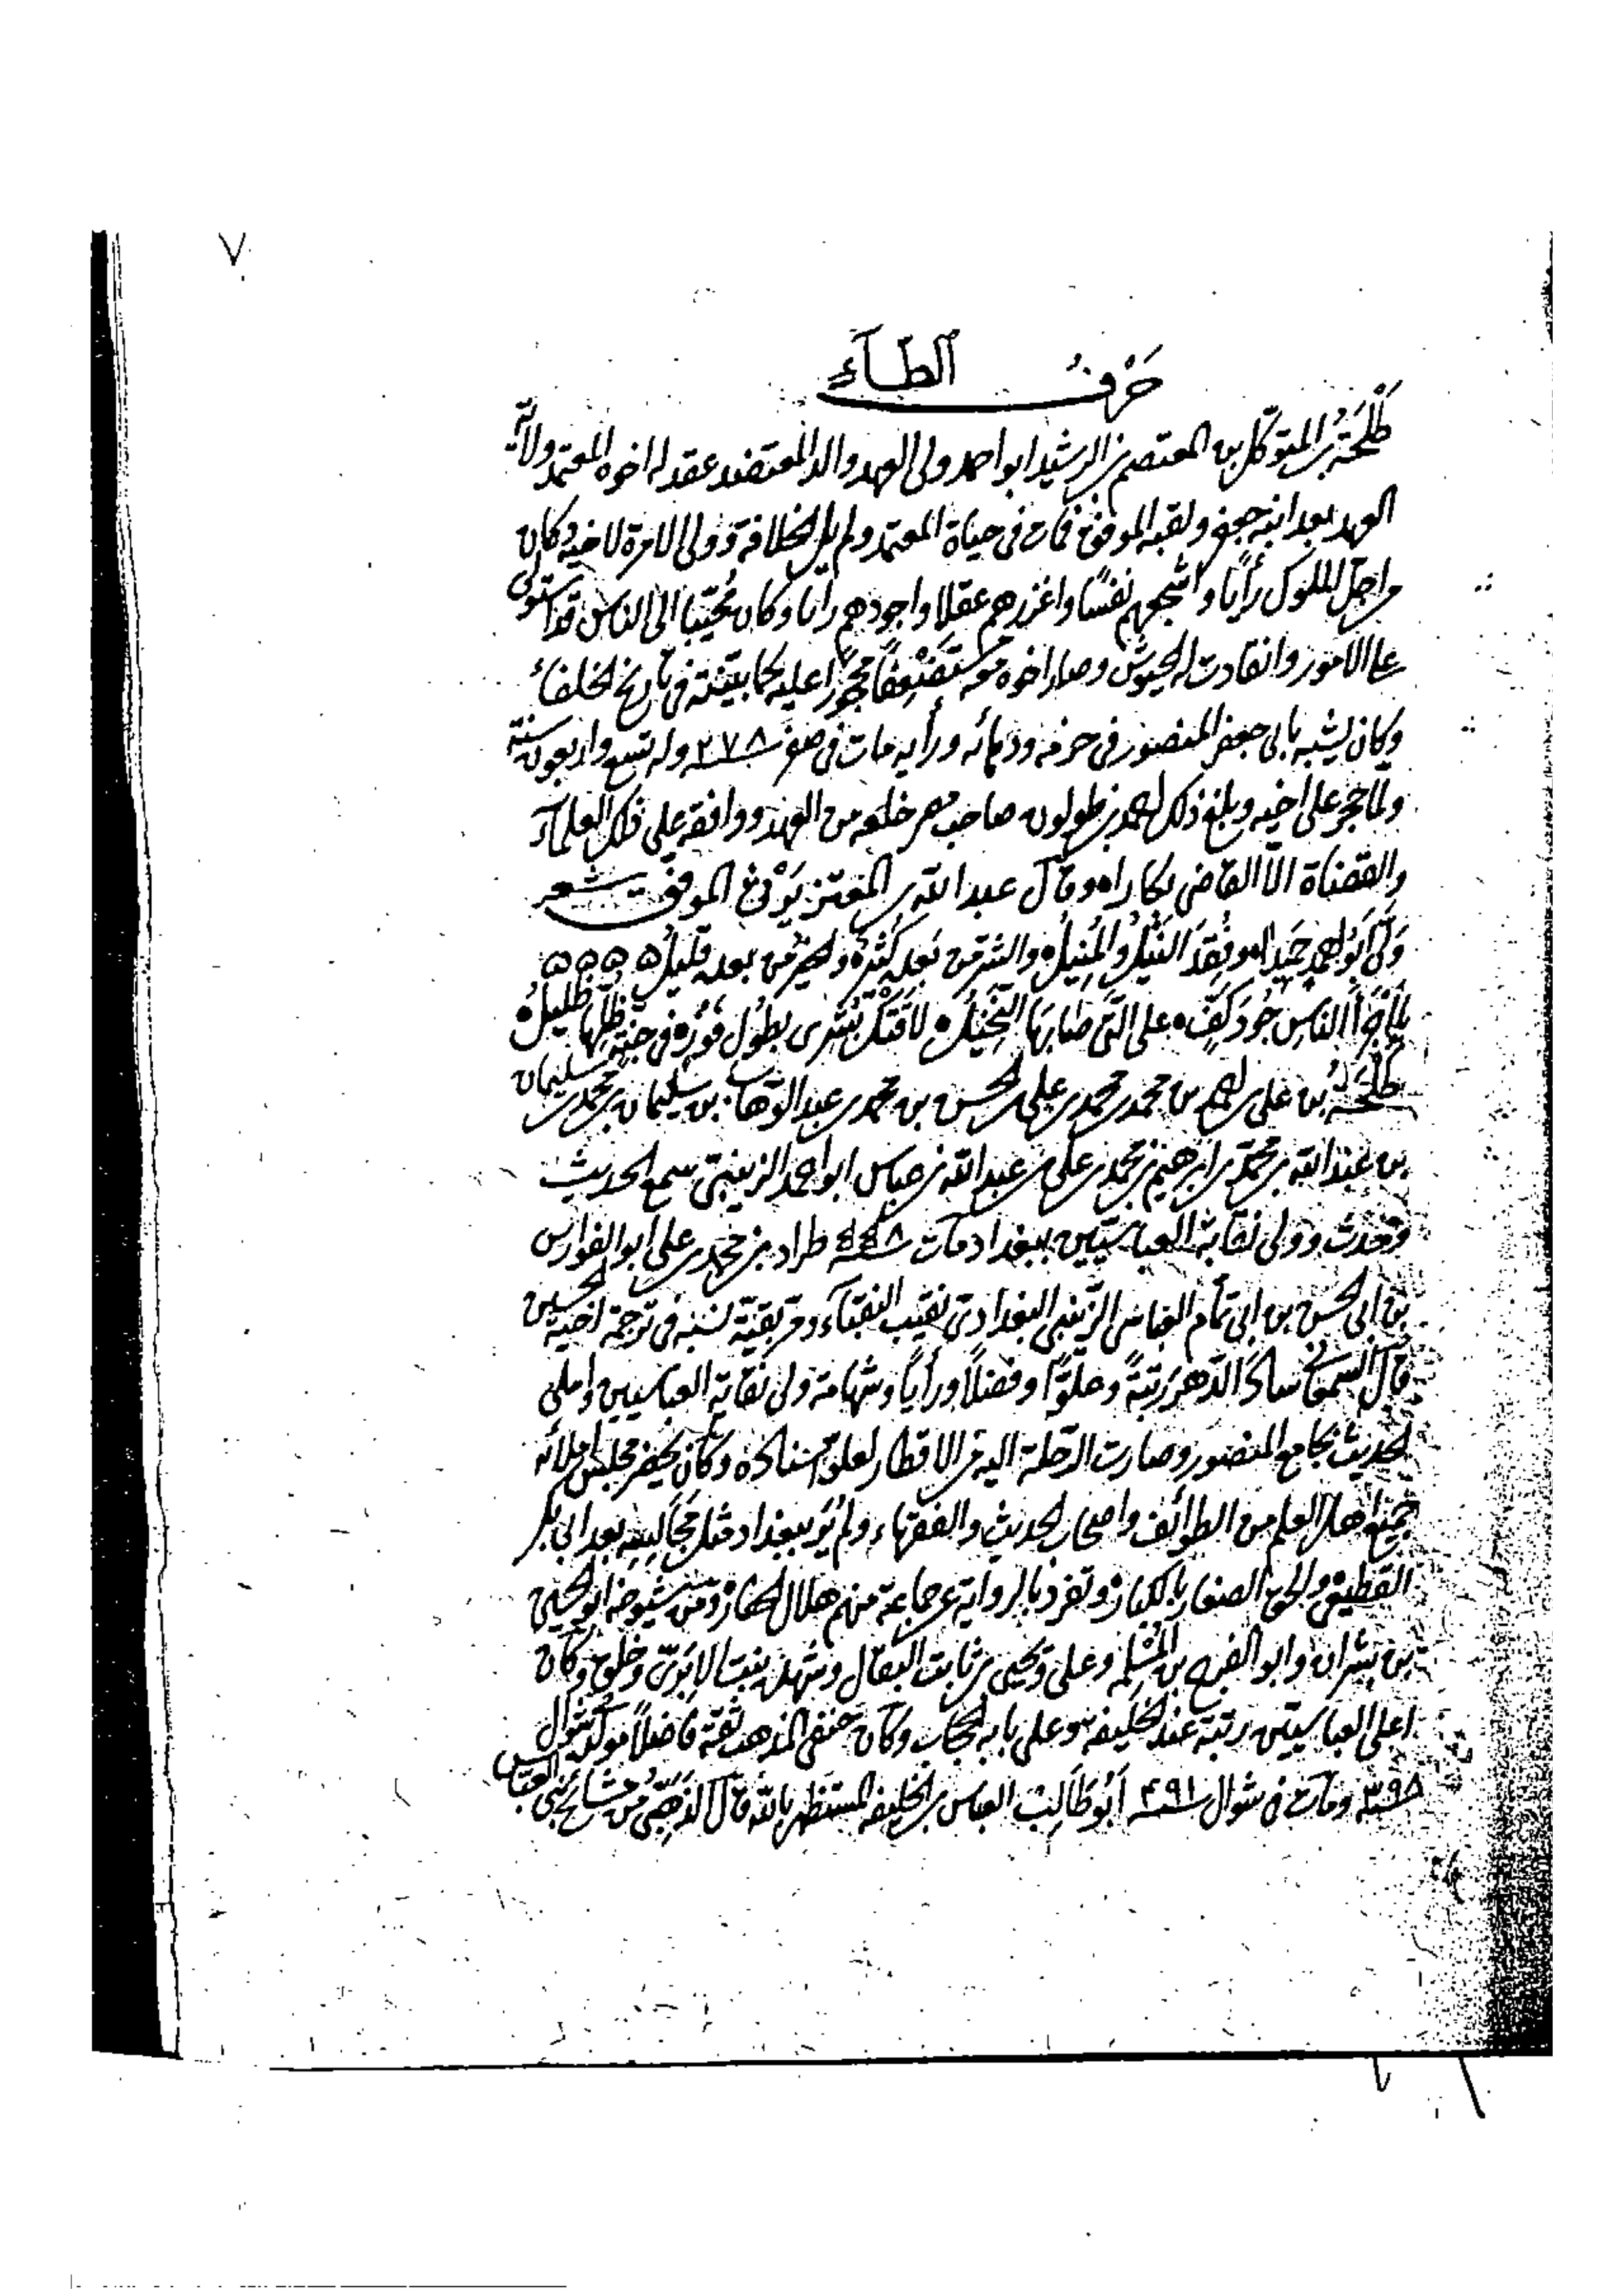 ٧
حَرْفُ الطَّآءِ
طَلْحَةُ بن المتوكّل بن المعتصم بن الرشيد ابو احمد ولى العهد والد المعتضد عقد له اخوه المعتمد ولاية
العهد بعد ابنه جعفر ولقبه الموفق فمات فى حياة المعتمد ولم يل الخلافة وولى الامرة لاخيه وكان
من اجلّ الملوك رأيًا واشجعهم نفسًا واغزرهم عقلا واجودهم رأيا وكان مُحَبَّبا الى الناس قد استولى
على الامور وانقادت له الجيوش وصار اخوه معه مستضعفًا محجورًا عليه كما بينته فى تاريخ الخلفاء
وكان يشبه بابى جعفر المنصور فى حزمه ودهائه ورأيه مات فى صفر سنة ٢٧٨ وله تسع واربعون سنة
ولما حجر على اخيه وبلغ ذلك احمد بن طولون صاحب مصر خلعه من العهد ووافقه على ذلك العلمآء
والقضاة الّا القاضى بكارا وقال عبد الله بن المعتز يَرْثى الموفق شعر
وَلَّى ابُو احمد حَمِيدا وفُقِدَ النَّيْلُ والمُنِيلُ والشر من بَعدِه كَثِيرٌ والخير من بعده قليل
الناسِ جُودَ كَفٍّ على التى بها البخيل بطول فى جنة ظلها ظليل
طَلْحَةُ بن على بن احمد بن محمد بن محمد بن على بن الحسن بن محمد بن عبد الوهاب بن سليمان بن محمد بن سليمان
بن عبد الله بن محمد بن ابرهيم بن محمد بن على بن عبد الله بن عباس ابو احمد الزينبى سمع الحديث
وتحدث وولى نقابة العباسيّين ببغداد مات سنة طراد بن محمد بن على ابو الفوارس
بن ابى الحسن بن ابى تمام العباسى الزّينبى البغدادى نقيب النقبآء وتر بقيّة نسبه فى ترجمة اخيه الحسين
قال السمعانى ساد الدّهر رتبةً وعلوًّا وفضلًا ورأيًا وشهامة ولى نقابة العباسيين واملى
الحديث بجامع المنصور وصارت الرّحلة اليه من الاقطار لعلوّ اسناده وكان يحضر مجلس املائه
جميع اهل العلم من الطوائف واصحاب الحديث والفقهاء ولم يُرَ ببغداد مثل مَجَالِسِه بعد ابى بكر
القطيعى والحق الصغار بالكبار وتفرد بالرواية عن جماعة منهم هلال الحفار ومن شيوخه ابو الحسين
بن بشران وابو الفرج بن المُسْلِمه وعلى ويحيى بن ثابت البقال وشهدة بنت الاِبَرِىّ وخلق وكان
اعلى العباسيّين رتبة عند الخليفه وعلى بابه الحجاب وكان حنفى المذهب ثقة فاضلًا مولده شوال
سنة ٣٩٨ ومات فى شوال سنة ٤٩١ أَبُو طَالِب العباس بن الخليفه المستظهر بالله قال الذهبى من مشايخ بنى العبّاس